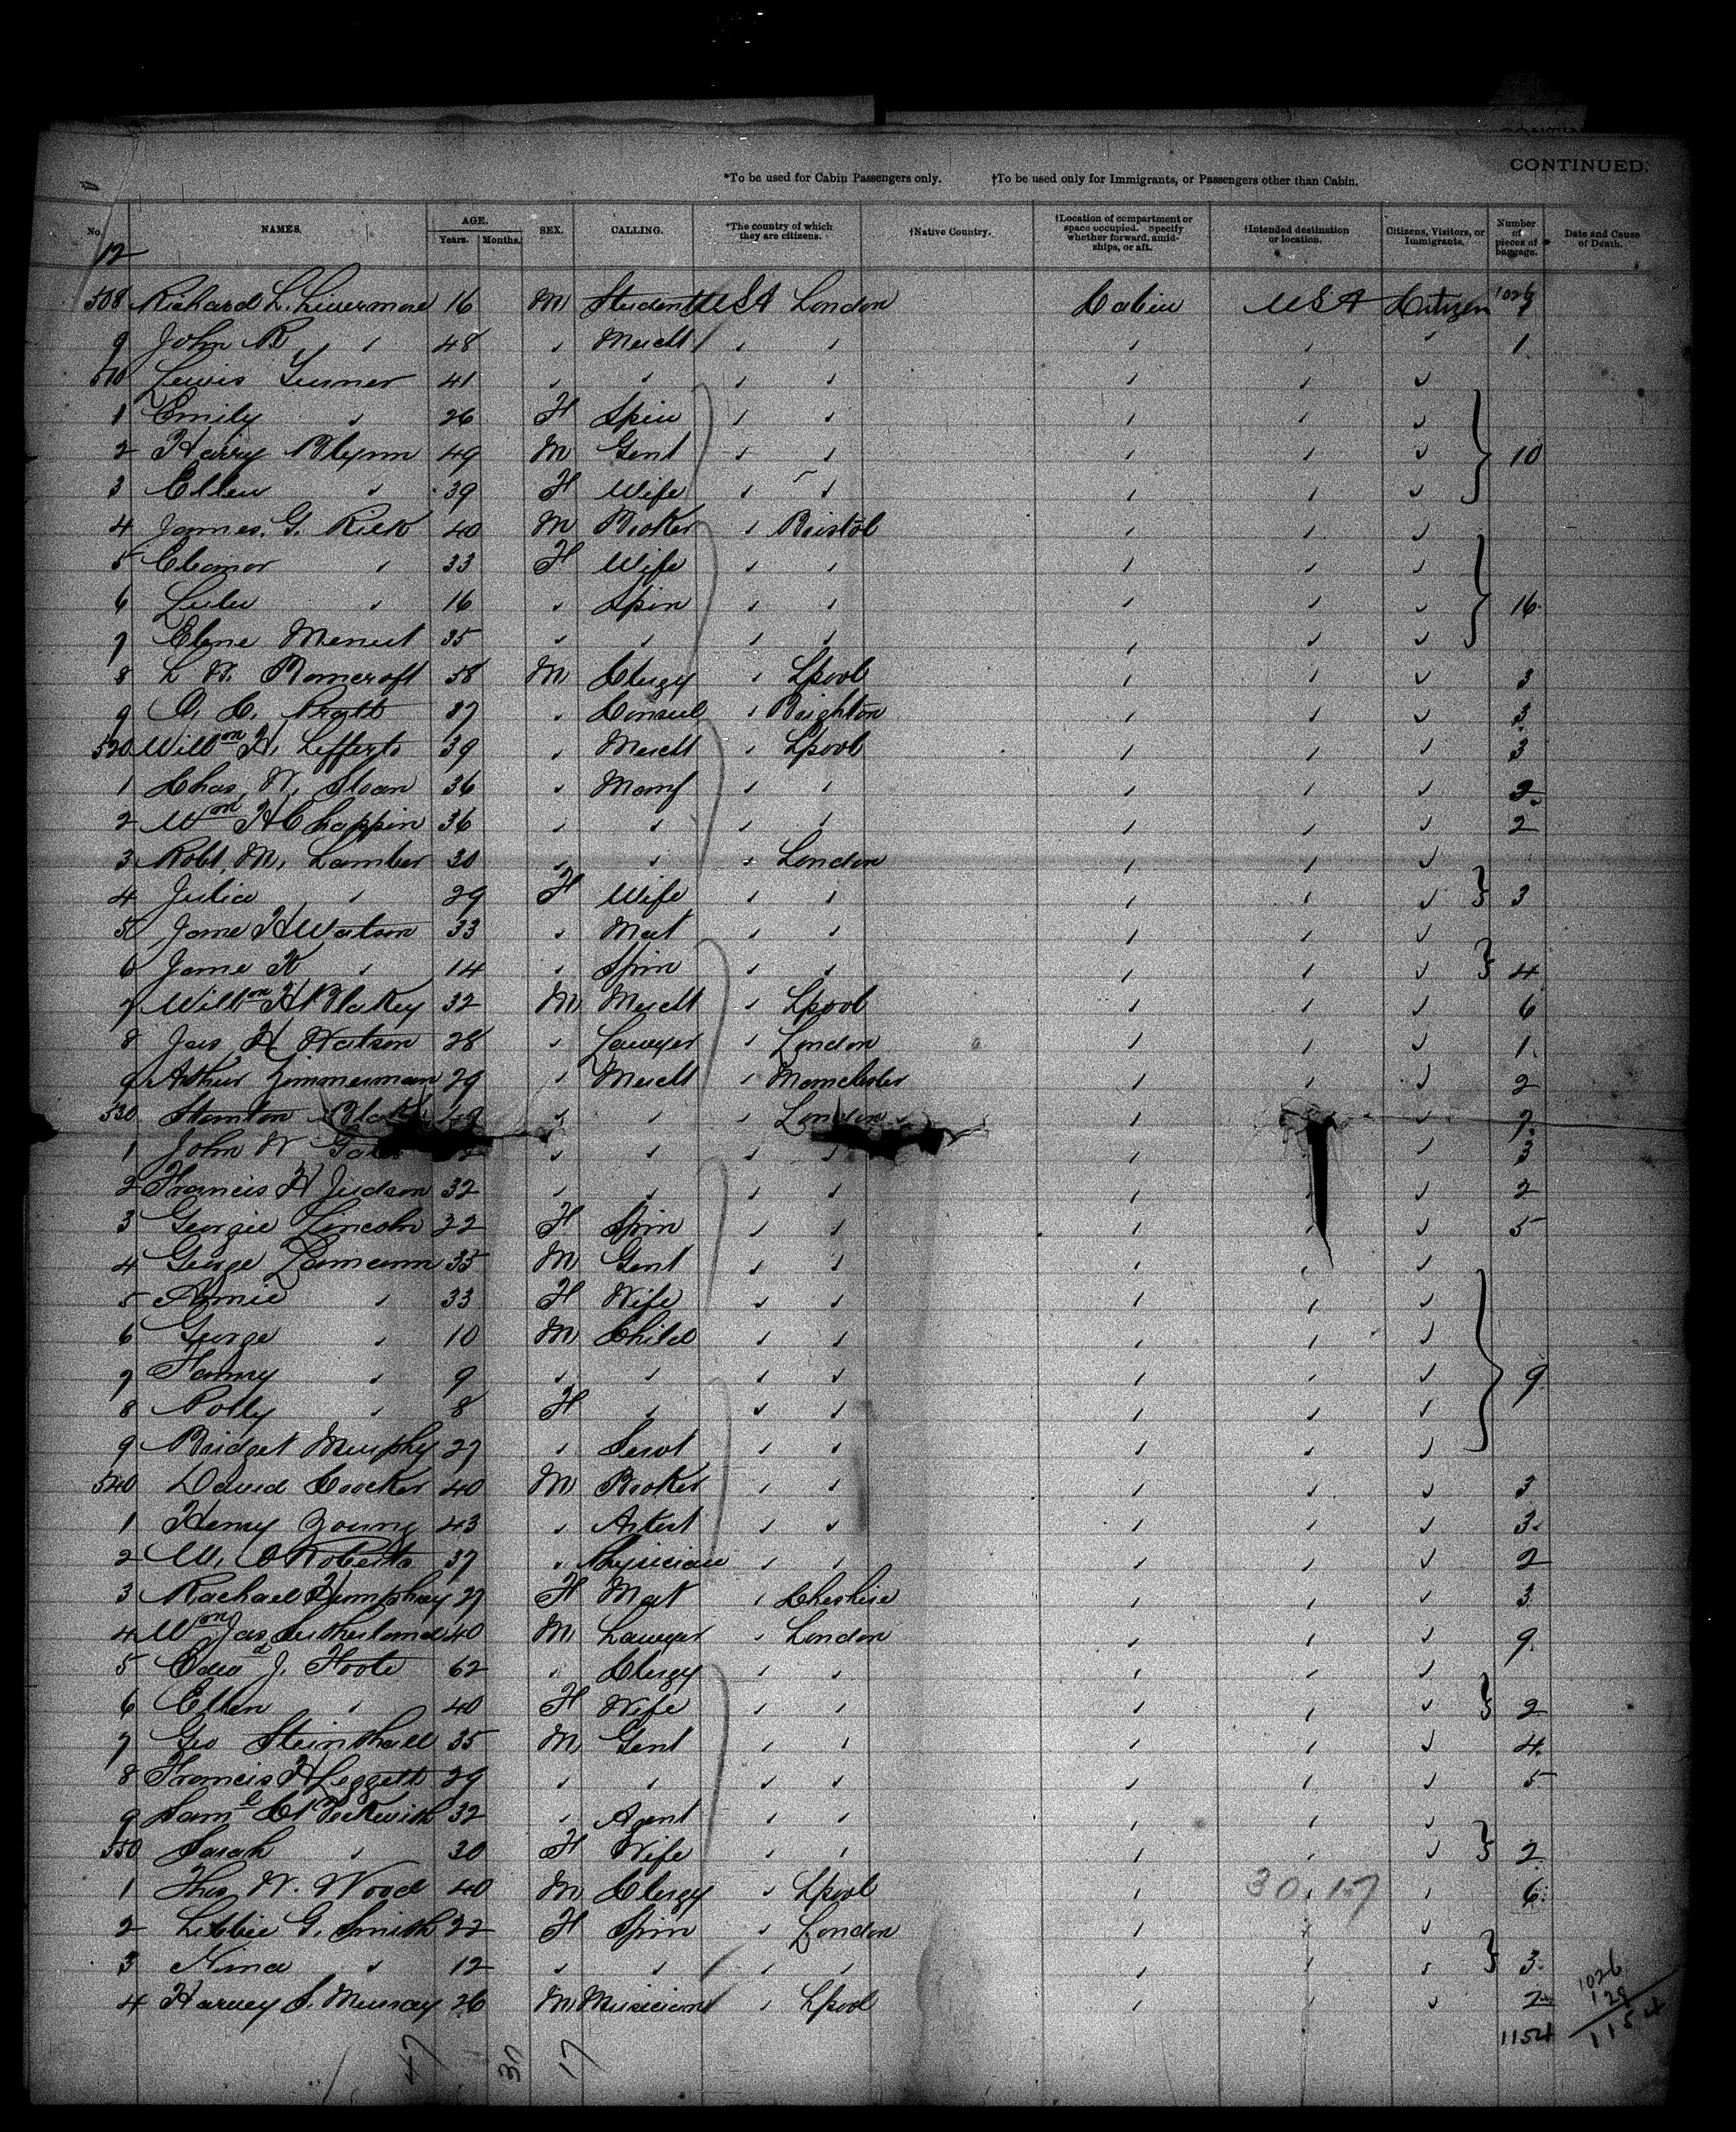 CONTINUED.
*To be used for Cabin Passengers only. †To be used only for Immigrants, or Passengers other than Cabin.
No. NAMES. AGE. Years. Months. SEX. CALLING. *The country of which they are citizens. †Native Country. †Location of compartment or space occupied. Specify whether forward, amidships, or aft. †Intended destination or location. Citizens, Visitors, or Immigrants. Number of pieces of baggage. Date and Cause of Death.
12
1026
508 Richard L. Livermore 16 M Student USA London Cabin USA Citizen
9 John R " 48 " Mercht " " " " " 1
510 Lewis Turner 41 " " " " " " "
1 Emily " 26 F Spin " " " " "
2 Harry Blynn 49 M Gent " " " " " 10
3 Ellen " 39 F Wife " " " " "
4 James. G. 40 M Broker " Bristol " " "
5 Eleanor " 33 F Wife " " " " "
6 Lulu " 16 " Spin " " " " " 16
7 35 " " " " " " "
8 L W. Bancroft 58 M Clergy " Lpool " " " 3
9 C. Pratt 37 " Consul " Brighton " " " 3
520 Willm H. Lefferts 39 " Mercht " Lpool " " " 3
1 Chas. W. Sloan 36 " Manf " " " " " 2
2 Wm H Chappin 36 " " " " " " " 2
3 Robt. M. Lamber 30 " " " London " " "
4 Julia " 29 F Wife " " " " " 3
5 Jane H Watson 33 " Mat " " " " "
6 Jane K " 14 " Spin " " " " " 4
7 Willm H Blakey 32 M Mercht " Lpool " " " 6
8 Jas H Watson 28 " Lawyer " London " " " 1
9 Arthur Zimmerman 29 " Mercht " Manchester " " " 2
530 Stanton " " " London " " " 7
1 John W " " " " " " " 3
2 Francis H Judson 32 " " " " " " " 2
3 Georgie Lincoln 22 F Spin " " " " " 5
4 George 35 M Gent " " " " "
5 Annie " 33 F Wife " " " " "
6 George " 10 M Child " " " " "
7 Fanny " 9 " " " " " " " 9
8 Polly " 8 F " " " " " "
9 Bridget Murphy 27 " Servt " " " " "
540 David Coocker 40 M Broker " " " " " 3
1 Henry Young 43 " Artist " " " " " 3
2 W. O Roberts 37 " Physician " " " " " 2
3 Rachael Humphrey 27 F Mat " Cheshire " " " 3
4 Wm Jas Sutherland 40 M Lawyer " London " " " 9
5 Edwd J. Foote 62 " Clergy " " " " "
6 Ellen " 40 F Wife " " " " " 2
7 Geo Steinthall 35 M Gent " " " " " 4
8 Francis H Leggett 29 " " " " " " " 5
9 Saml C Beckwith 32 " Agent " " " " "
550 Sarah " 30 F Wife " " " " " 2
1 Thos W. Wood 40 M Clergy " Lpool " " " 6
30.17
2 Libbie G. Smith 22 F Spin " London " " "
3 Nina " 12 " " " " " " " 3
4 Harvey S. Murray 26 M Musician " Lpool " " " 2
1154
1026
128
1154
47 30 17